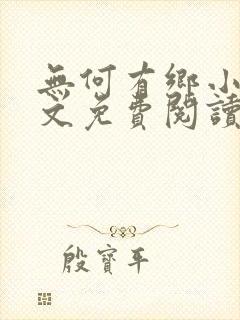 無何有鄉小
文免費閱讀
殷寶平